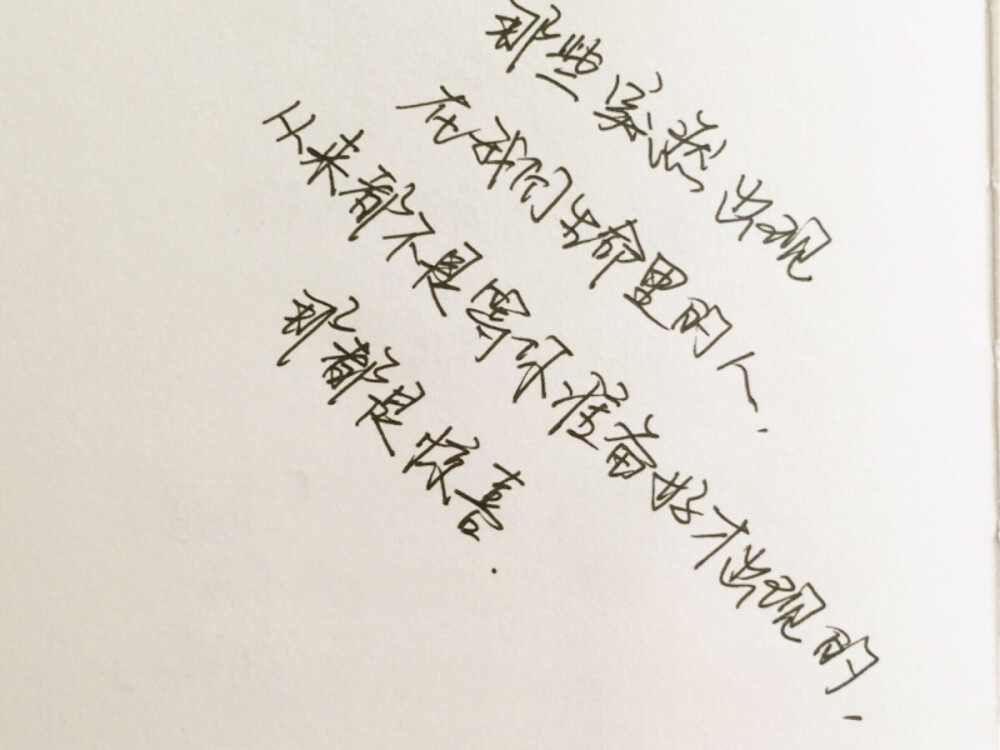 那些突然出现
在我们生命里的人.
从来都不是等你准备好才出现的.
那都是惊喜.